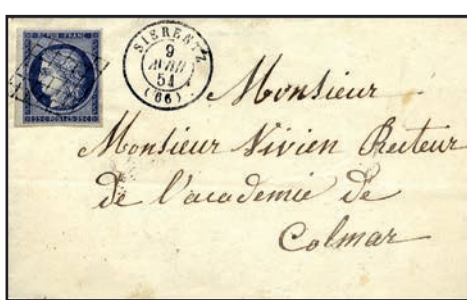 REPUB. FRANC.
25 C POSTES 25 C
SIERENTZ
9
AVRIL
51
(66)
Monsieur
Monsieur Vivien Recteur
de l'academie de
Colmar